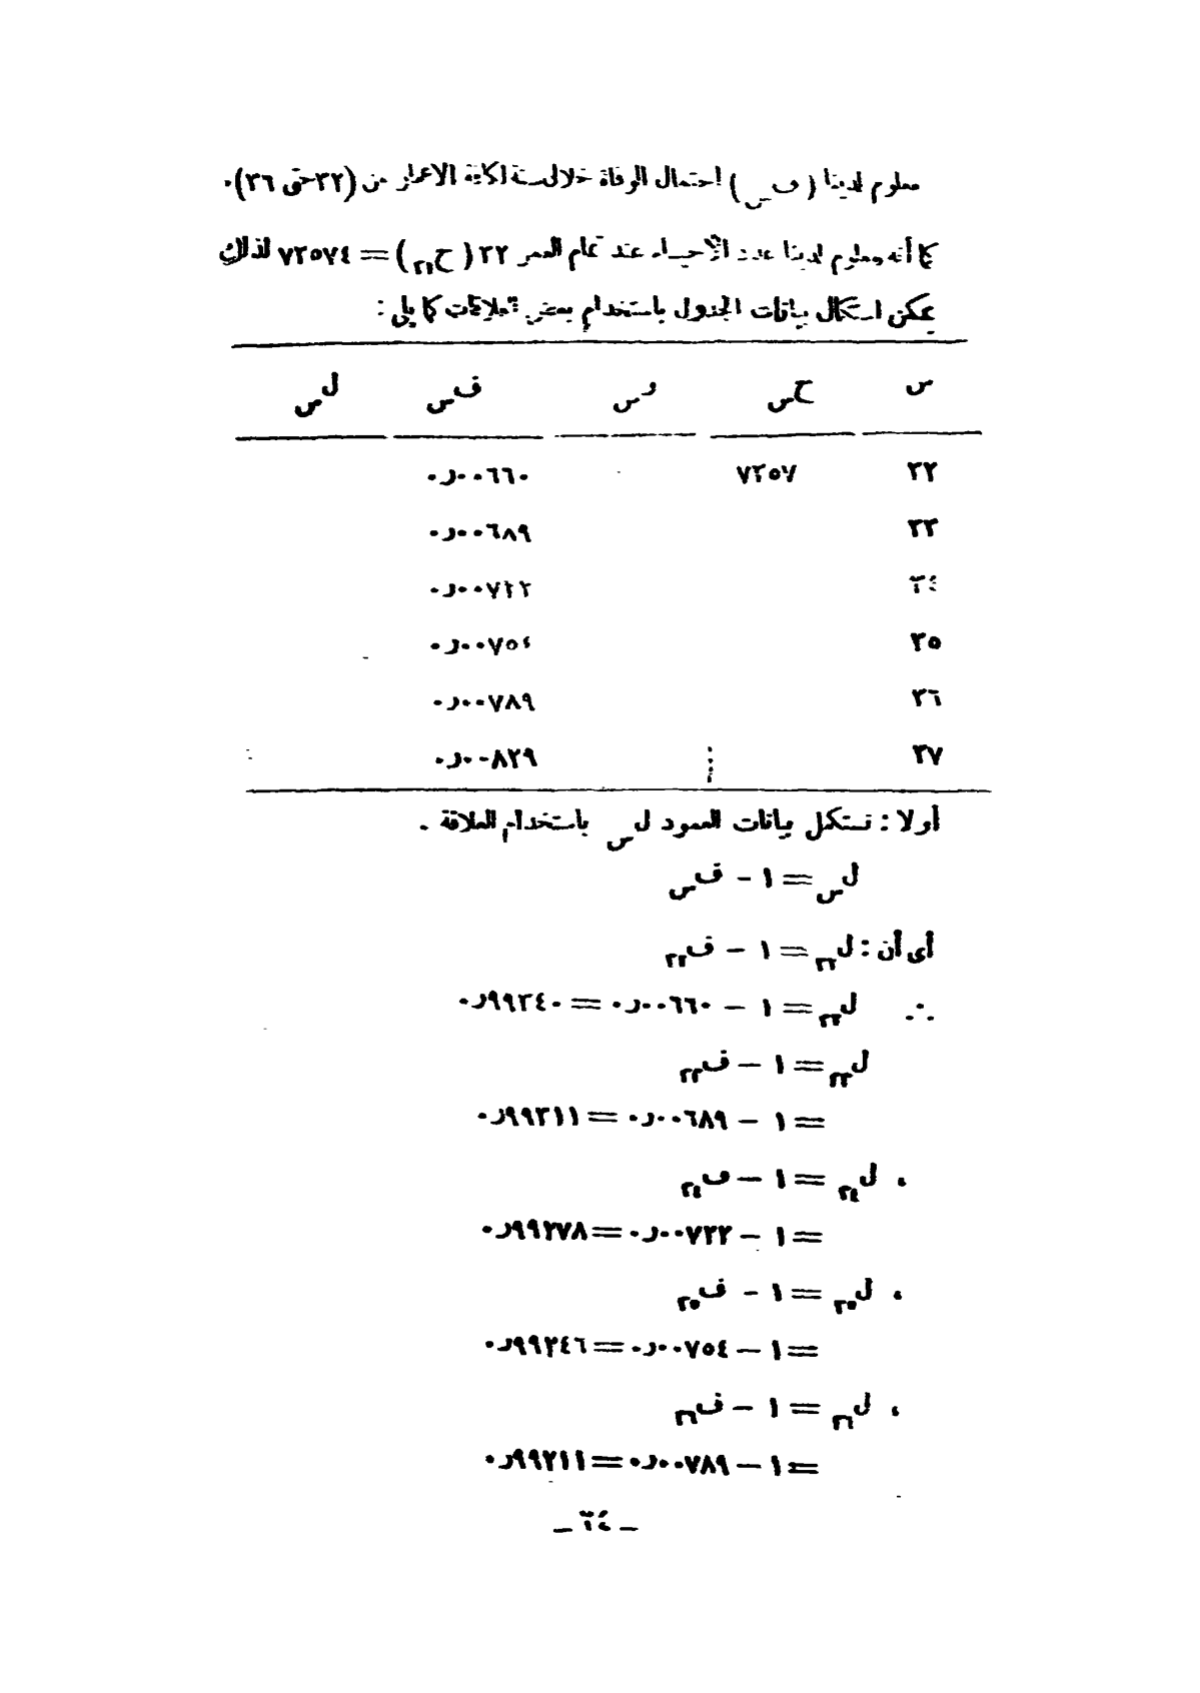 معلوم لدينا ( ف س ) احتمال الوفاة خلال سنة لكافة الاعمار من (٣٢ حتى ٣٦).
كما أنه معلوم لدينا عدد الأحياء عند تمام العمر ٣٢ ( ح٣٢ ) = ٧٣٥٧٤ لذلك
يمكن استكمال بيانات الجدول باستخدام بعض العلاقات كما يلى :
س ح س و س ف س ل س
٣٢ ٧٣٥٧ ٠٫٠٠٦٦٠
٣٣ ٠٫٠٠٦٨٩
٣٤ ٠٫٠٠٧٢٢
٣٥ ٠٫٠٠٧٥٤
٣٦ ٠٫٠٠٧٨٩
٣٧ ٠٫٠٠٨٢٩
أولا : نستكمل بيانات العمود ل س باستخدام العلاقة .
ل س = ١ - ف س
أى أن : ل٣٢ = ١ - ف٣٢
∴ ل٣٢ = ١ - ٠٫٠٠٦٦٠ = ٠٫٩٩٣٤٠
ل٣٣ = ١ - ف٣٣
= ١ - ٠٫٠٠٦٨٩ = ٠٫٩٩٣١١
، ل٣٤ = ١ - ف٣٤
= ١ - ٠٫٠٠٧٢٢ = ٠٫٩٩٢٧٨
، ل٣٥ = ١ - ف٣٥
= ١ - ٠٫٠٠٧٥٤ = ٠٫٩٩٢٤٦
، ل٣٦ = ١ - ف٣٦
= ١ - ٠٫٠٠٧٨٩ = ٠٫٩٩٢١١